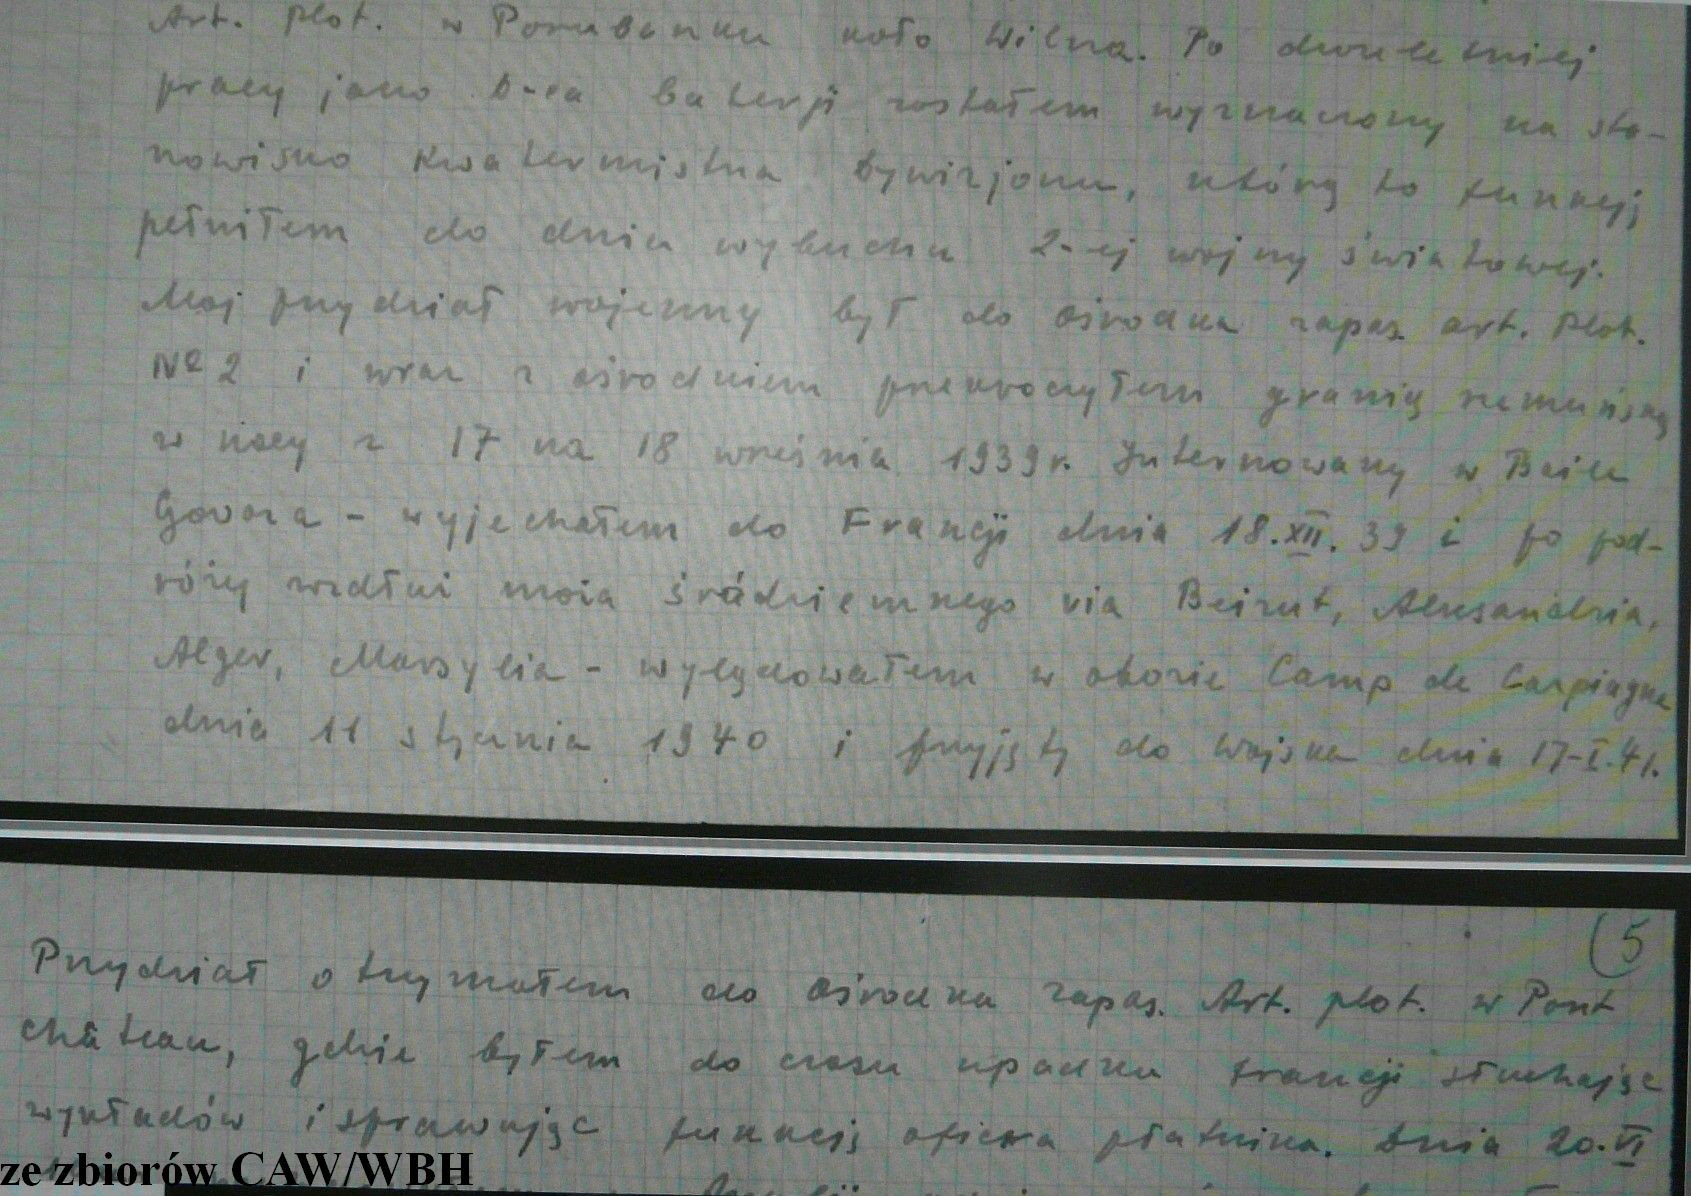 Art. plot. w Porubanku koło Wilna. Po dwuletniej
pracy jako d-ca baterji zostałem wyznaczony na sta-
nowisko kwatermistrza dywizjonu, którą to funkcję
pełniłem do dnia wybuchu 2-ej wojny światowej.
Moj przydział wojenny był do ośrodka zapas. art. plot.
№ 2 i wraz z ośrodkiem przekroczyłem granicę rumuńską
w nocy z 17 na 18 września 1939 r. Internowany w Baile
Govora - wyjechałem do Francji dnia 18.XII.39 i po pod-
róży wzdłuż moża śródziemnego via Beirut, Aleksandria,
Alger, Marsylia - wylądowałem w obozie Camp de Carpiagne
dnia 11 stycznia 1940 i przyjęty do wojska dnia 17-I.41.
(5
Przydział otrzymałem do ośrodka zapas. Art. plot. w Pont
château, gdzie byłem do czasu upadku francji słuchając
wykładów i sprawując funkcję oficera płatnika. Dnia 20.VI
ze zbiorów CAW/WBH